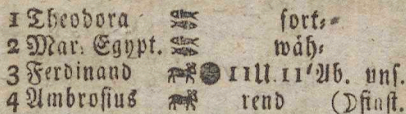 1 Theodora ♓ fort⸗
2 Mar. Egypt. ♓ wäh⸗
3 Ferdinand ♈ ● 11U. 11′ Ab. unſ.
4 Ambroſius ♈ rend (☽finſt.